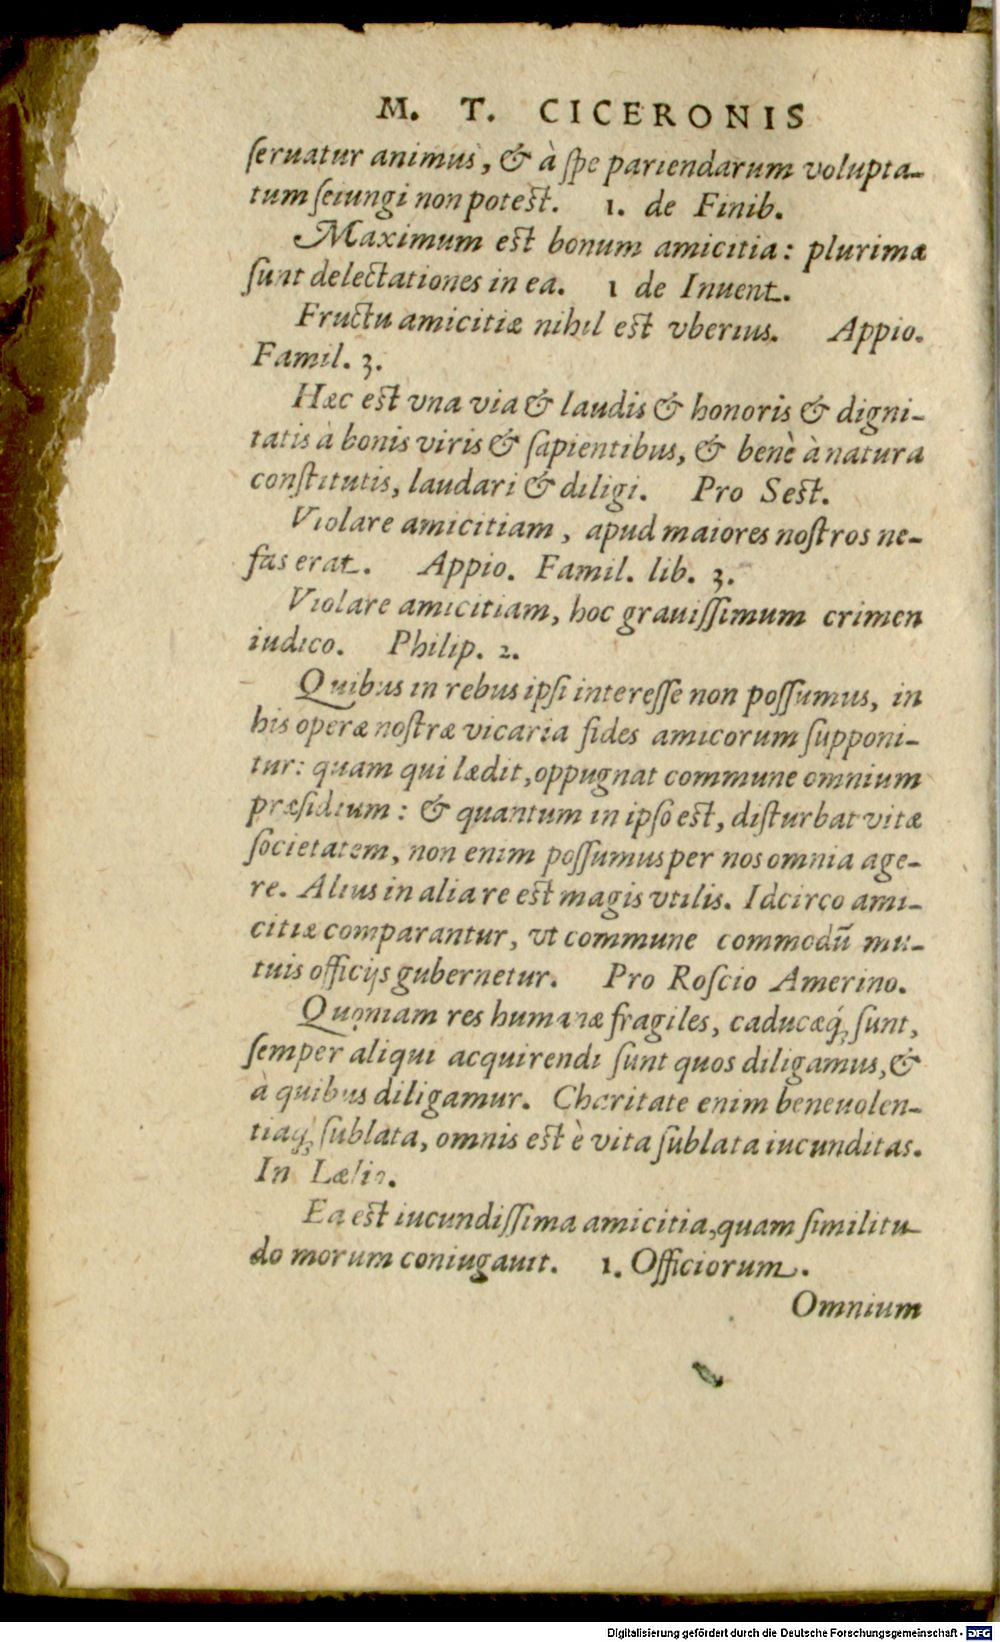 M. T. CICERONIS
ſeruatur animus, & à ſpe pariendarum volupta-
tum ſeiungi non poteſt. 1. de Finib.
Maximum eſt bonum amicitia: plurimæ
ſunt delectationes in ea. 1 de Inuent.
Fructu amicitiæ nihil eſt vberius. Appio.
Famil. 3.
Hæc eſt vna via & laudis & honoris & digni-
tatis à bonis viris & ſapientibus, & benè à natura
conſtitutis, laudari & diligi. Pro Seſt.
Violare amicitiam, apud maiores noſtros ne-
fas erat. Appio. Famil. lib. 3.
Violare amicitiam, hoc grauiſſimum crimen
iudico. Philip. 2.
Quibus in rebus ipſi intereſſe non poſſumus, in
his operæ noſtræ vicaria fides amicorum ſupponi-
tur: quam qui lædit, oppugnat commune omnium
præſidium: & quantum in ipſo eſt, diſturbat vitæ
ſocietatem, non enim poſſumus per nos omnia age-
re. Alius in alia re eſt magis vtilis. Idcirco ami-
citiæ comparantur, vt commune commodū mu-
tuis officijs gubernetur. Pro Roſcio Amerino.
Quoniam res humanæ fragiles, caducæq́; ſunt,
ſemper aliqui acquirendi ſunt quos diligamus, &
à quibus diligamur. Charitate enim beneuolen-
tiaq́; ſublata, omnis eſt è vita ſublata iucunditas.
In Lælio.
Ea eſt iucundiſſima amicitia, quam ſimilitu
do morum coniugauit. 1. Officiorum.
Omnium
Digitalisierung gefördert durch die Deutsche Forschungsgemeinschaft - DFG